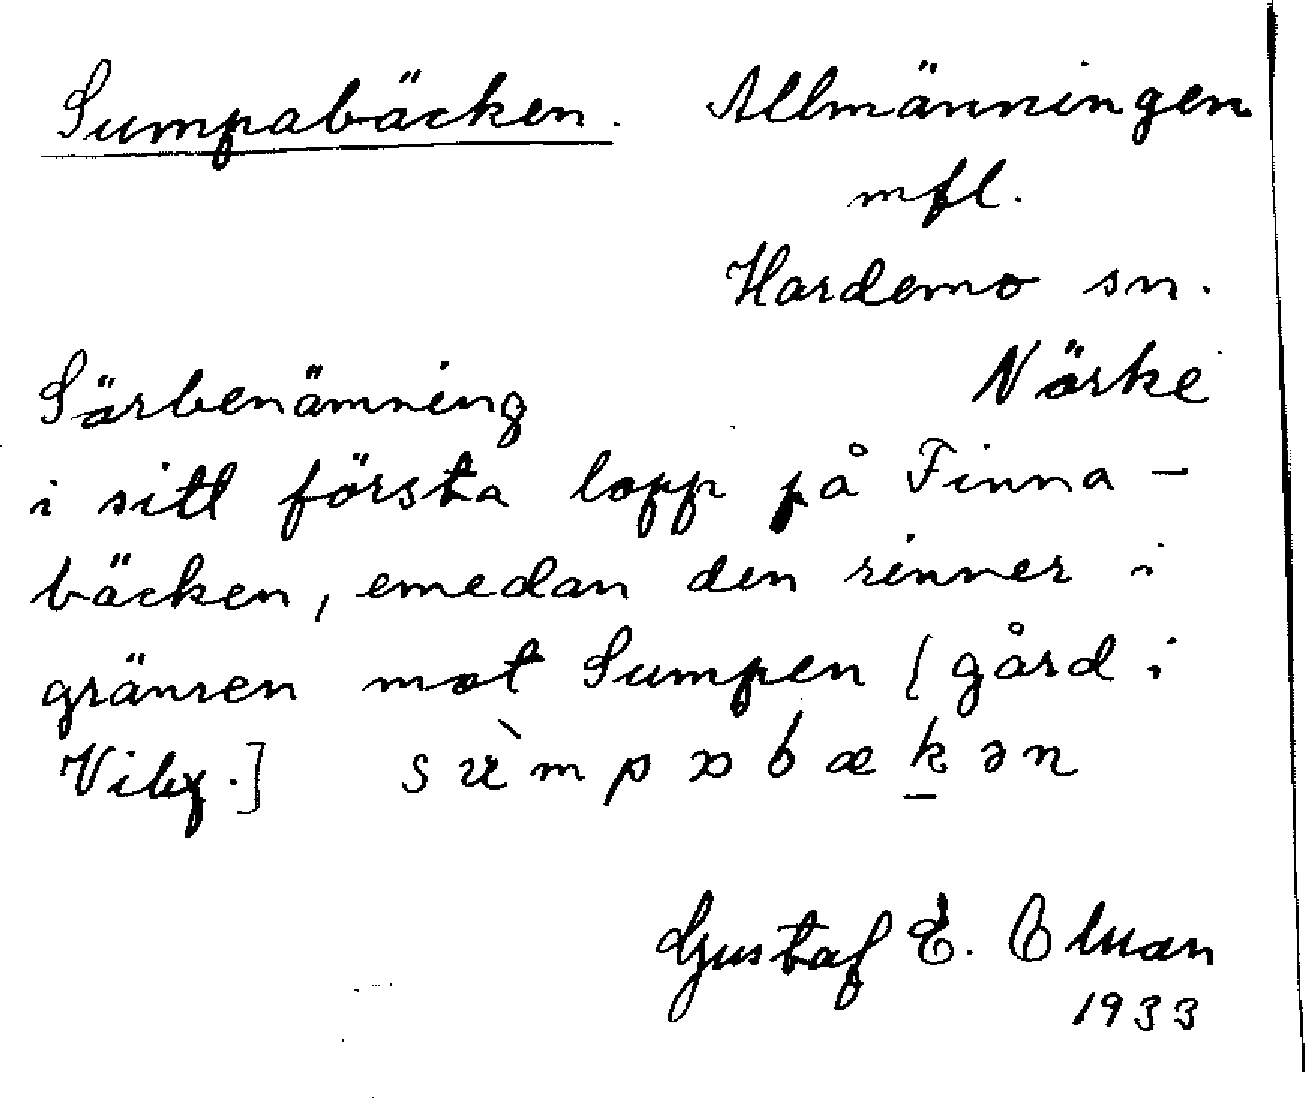 Sumpabäcken. Allmänningen
mfl.
Hardemo sn.
Närke
Särbenämning
i sitt första lopp på Finna-
bäcken, emedan den rinner i
gränsen mot Sumpen [gård i
Viby.] sɯ̀mpɒbækən
Gustaf E. Elman
1933